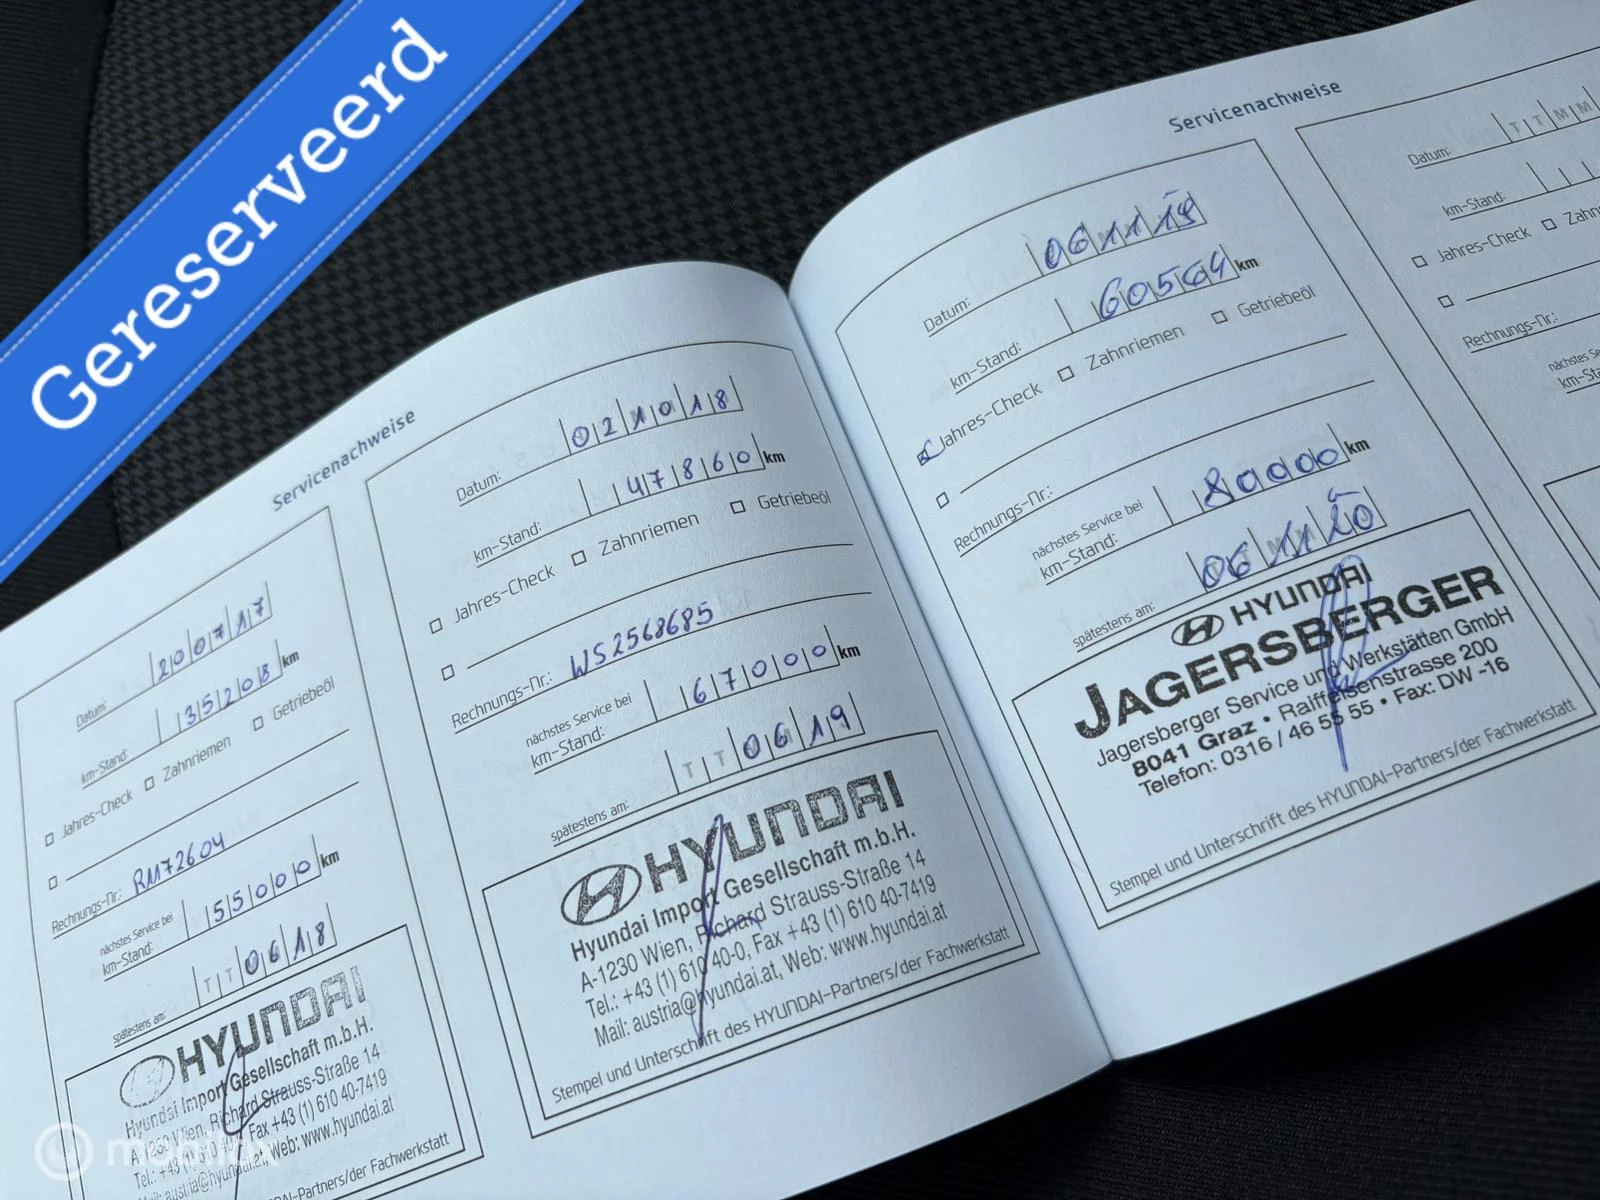 Gereserveerd
Servicenachweise
Datum: 200717
km-Stand: 35208 km
Jahres-Check Zahnriemen Getriebeöl
Rechnungs-Nr.: RM72604
nächstes Service bei
km-Stand: 55000 km
spätestens am: TT 0618
HYUNDAI
Hyundai Import Gesellschaft m.b.H.
Wien, Richard Strauss-Straße 14
Tel.: +43 (1) Fax +43 (1) 610 40-7419
Mail: austria@hyundai.at, Web: www.hyundai.at
HYUNDAI-Partners/der Fachwerkstatt
Datum: 021018
km-Stand: 47860 km
Jahres-Check Zahnriemen Getriebeöl
Rechnungs-Nr.: WS2568685
nächstes Service bei
km-Stand: 67000 km
spätestens am: TT 0619
HYUNDAI
Hyundai Import Gesellschaft m.b.H.
A-1230 Wien, Richard Strauss-Straße 14
Tel.: +43 (1) 610 40-0, Fax +43 (1) 610 40-7419
Mail: austria@hyundai.at, Web: www.hyundai.at
Stempel und Unterschrift des HYUNDAI-Partners/der Fachwerkstatt
Servicenachweise
Datum: 061119
km-Stand: 60564 km
Jahres-Check Zahnriemen Getriebeöl
Rechnungs-Nr.:
nächstes Service bei
km-Stand: 80000 km
spätestens am: 061120
HYUNDAI
JAGERSBERGER
Jagersberger Service und Werkstätten GmbH
8041 Graz • Raiffeisenstrasse 200
Telefon: 0316 / 46 55 55 • Fax: DW -16
Stempel und Unterschrift des HYUNDAI-Partners/der Fachwerkstatt
Datum: TTMM
km-Stand:
Jahres-Check
Rechnungs-Nr.:
nächstes